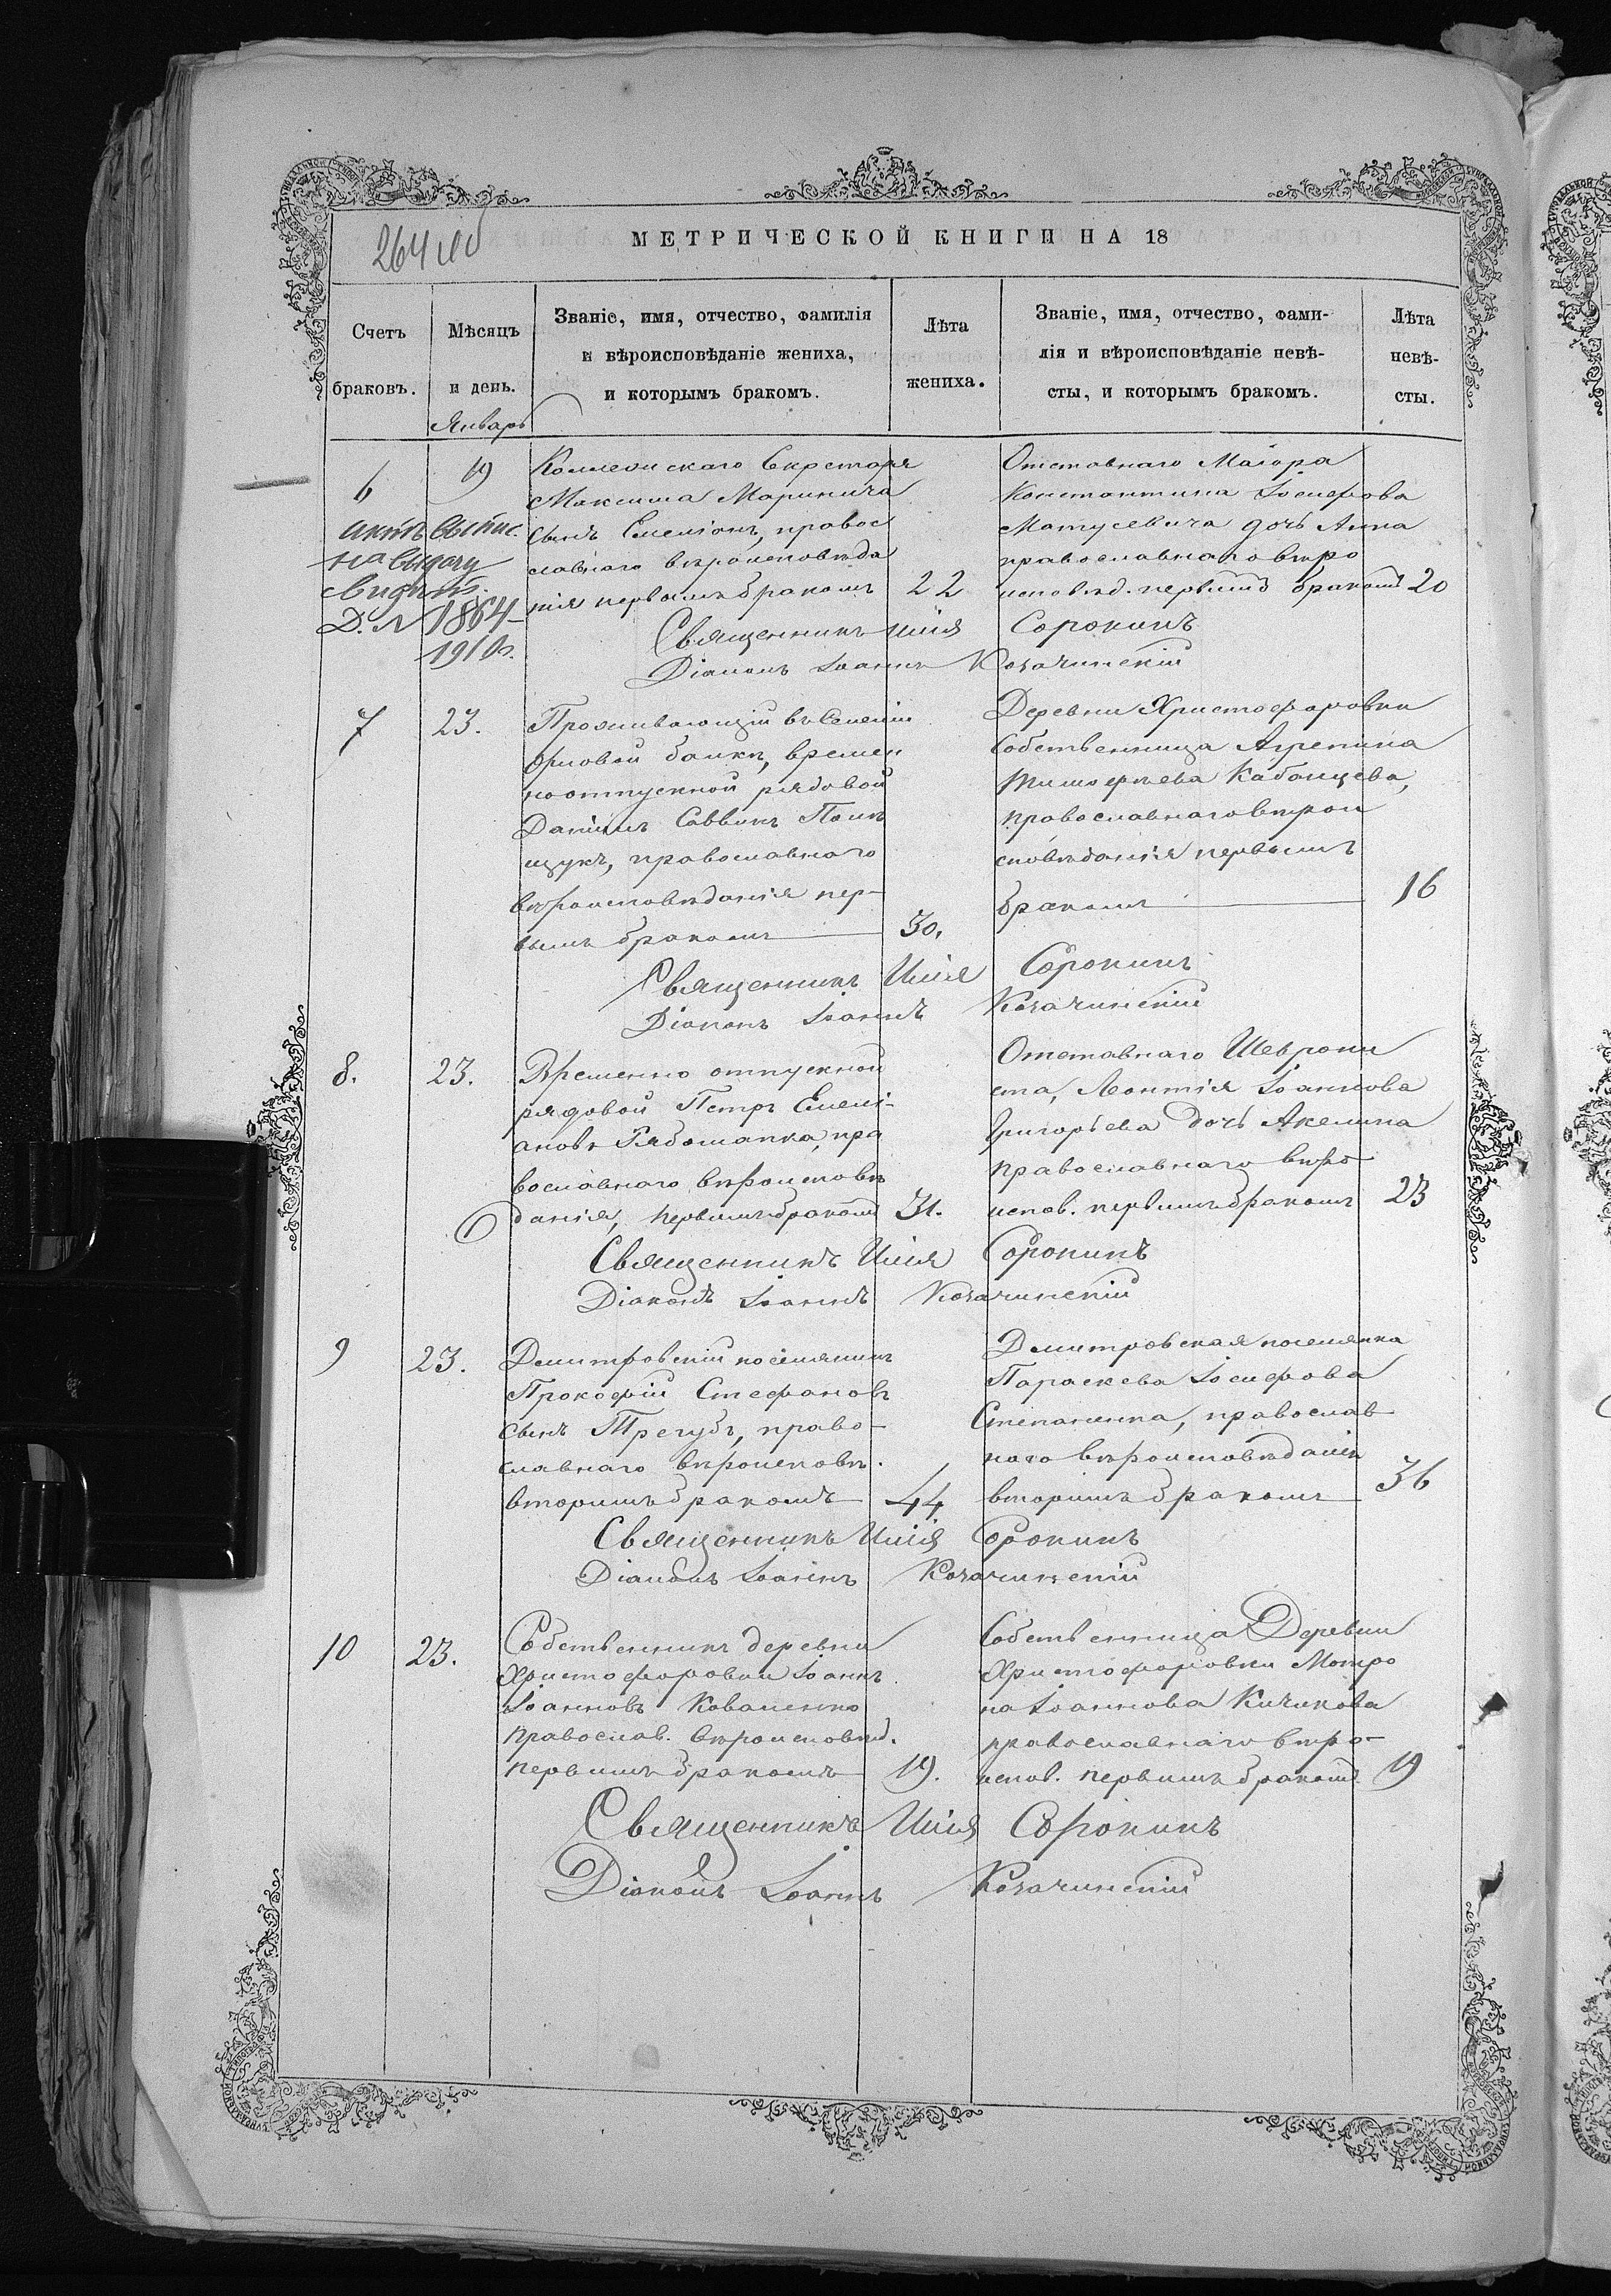 264 об
МЕТРИЧЕСКОЙ КНИГИ НА 18
Счетъ
браковъ.
Мѣсяцъ
и день.
Январь
Званіе, имя, отчество, фамилія
и вѣроисповѣданіе жениха,
и которымъ бракомъ.
Лѣта
жениха.
Званіе, имя, отчество, фами-
лія и вѣроисповѣданіе невѣ-
сты, и которымъ бракомъ.
Лѣта
невѣ-
сты.
6
19
актъ выпис.
на выдачу
свидѣт.
Д. № 1864
1910г.
Коллежскаго Секретаря
Максима Маринича
сынъ Емеліонъ, правос
славнаго вѣроисповѣда
нія первымъ бракомъ
22
Отставнаго Маіора
Константина Іосифова
Матусевича дочь Анна
православнаго вѣро
исповѣд. первымъ бракомъ
20
Священникъ Илія Сорокинъ
Діаконъ Іоаннъ Козачинскій
7
23.
Проживающій въ Селеніи
Орловой балкѣ, времен
ноотпускной рядовой
Даніилъ Саввинъ Поли
щукъ, православнаго
вѣроисповѣданія пер-
вымъ бракомъ
30.
Деревни Христофоровки
Собственница Агрепина
Тимофѣева Кабанцева,
православнаго вѣрои
сповѣданія первымъ
бракомъ
16
Священникъ Илія Сорокинъ
Діаконъ Іоаннъ Козачинскій
8.
23.
Временно отпускной
рядовой Петръ Емелі-
ановъ Рябошапка, пра
вославнаго вѣроисповѣ
данія, первымъ бракомъ
31.
Отставнаго Шеврони
ста, Леонтія Іоаннова
Григорьева дочь Акелина
православнаго вѣро
испов. первымъ бракомъ
23
Священникъ Илія Сорокинъ
Діаконъ Іоаннъ Козачинскій
9
23.
Дмитровскій поселянинъ
Прокофій Стефановъ
сынъ Трегубъ, право-
славнаго вѣроисповѣ.
вторимъ бракомъ
44
Дмитровская поселянка
Параскева Іосифова
Степаненка, православ
наго вѣроисповѣданія
вторимъ бракомъ
36
Священникъ Илія Сорокинъ
Діаконъ Іоаннъ Козачинскій
10
23.
Собственникъ деревни
Христофоровки Іоаннъ
Іоанновъ Коваленко
православ. вѣроисповѣд.
первимъ бракомъ
19.
Собственница Деревни
Христофоровки Матро
на Іоаннова Кичикова
православнаго вѣро-
испов. первимъ бракомъ
19
Священникъ Илія Сорокинъ
Діаконъ Іоаннъ Козачинскій